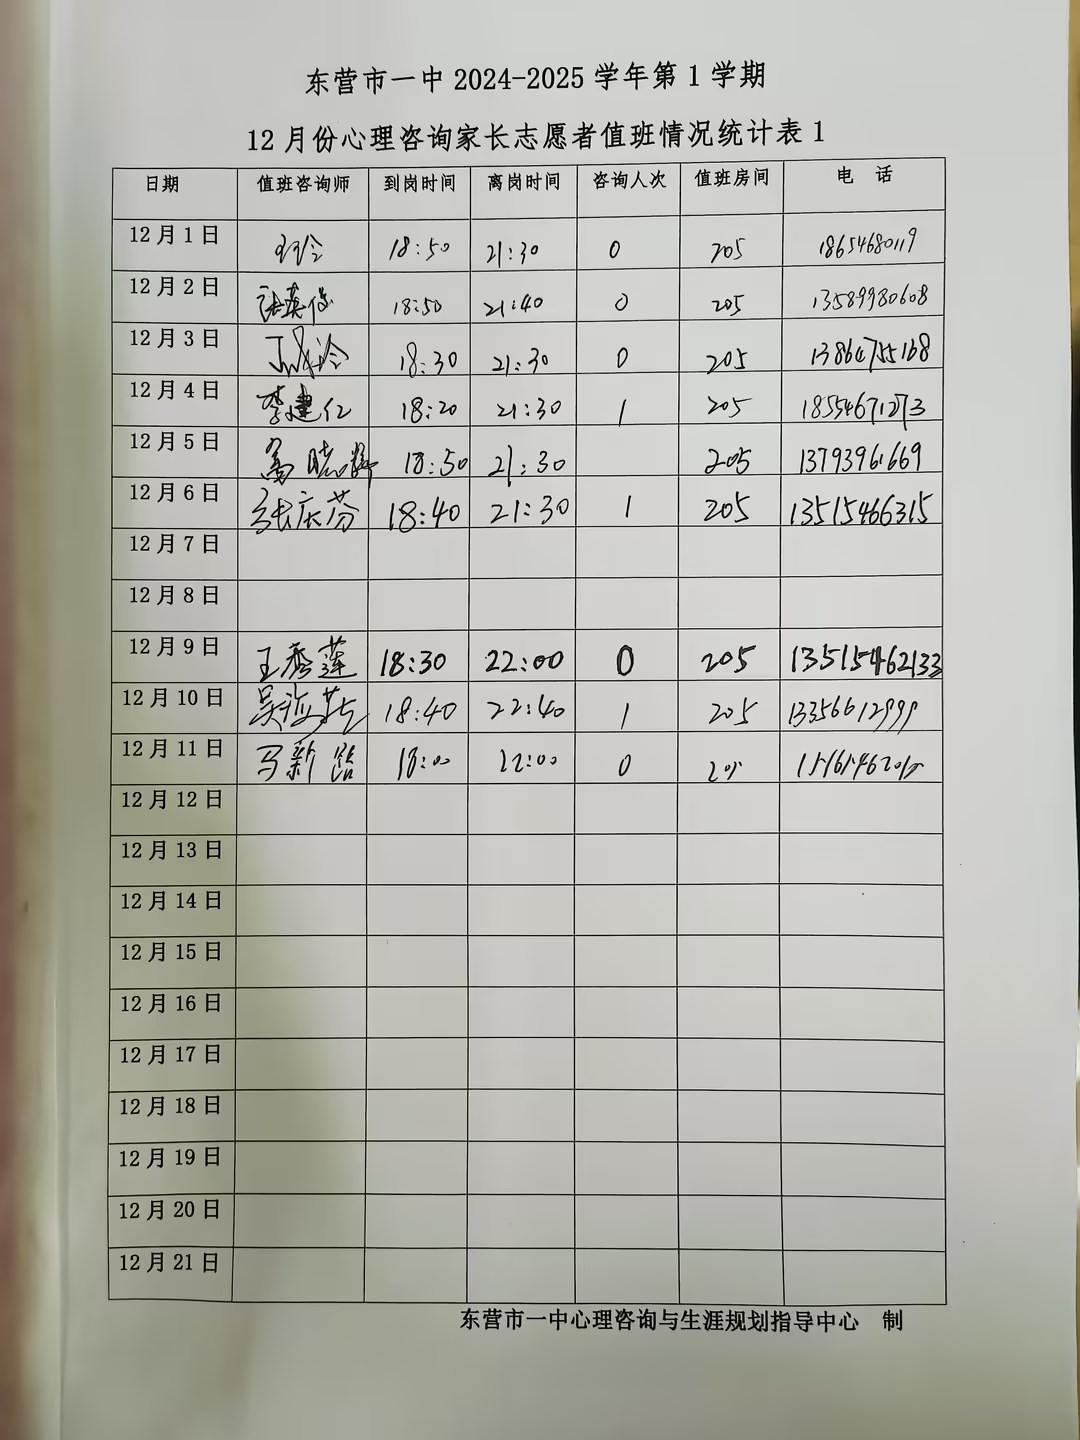 东营市一中 2024-2025 学年第 1 学期
12 月份心理咨询家长志愿者值班情况统计表 1
日期 值班咨询师 到岗时间 离岗时间 咨询人次 值班房间 电 话
12 月 1 日 18:50 21:30 0 205 18654680119
12 月 2 日 18:50 21:40 0 205 13589980608
12 月 3 日 18:30 21:30 0 205 13864755168
12 月 4 日 李建仁 18:20 21:30 1 205 18554671273
12 月 5 日 18:50 21:30 205 13793961669
12 月 6 日 张庆芬 18:40 21:30 1 205 13515466315
12 月 7 日
12 月 8 日
12 月 9 日 王秀莲 18:30 22:00 0 205 13515462133
12 月 10 日 18:40 22:40 1 205
12 月 11 日 马新 18:00 22:00 0 205
12 月 12 日
12 月 13 日
12 月 14 日
12 月 15 日
12 月 16 日
12 月 17 日
12 月 18 日
12 月 19 日
12 月 20 日
12 月 21 日
东营市一中心理咨询与生涯规划指导中心 制